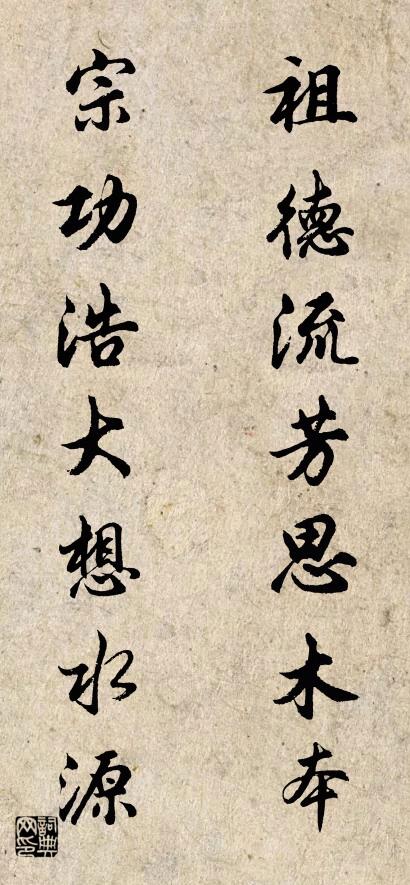 祖德流芳思木本
宗功浩大想水源
詞典網印